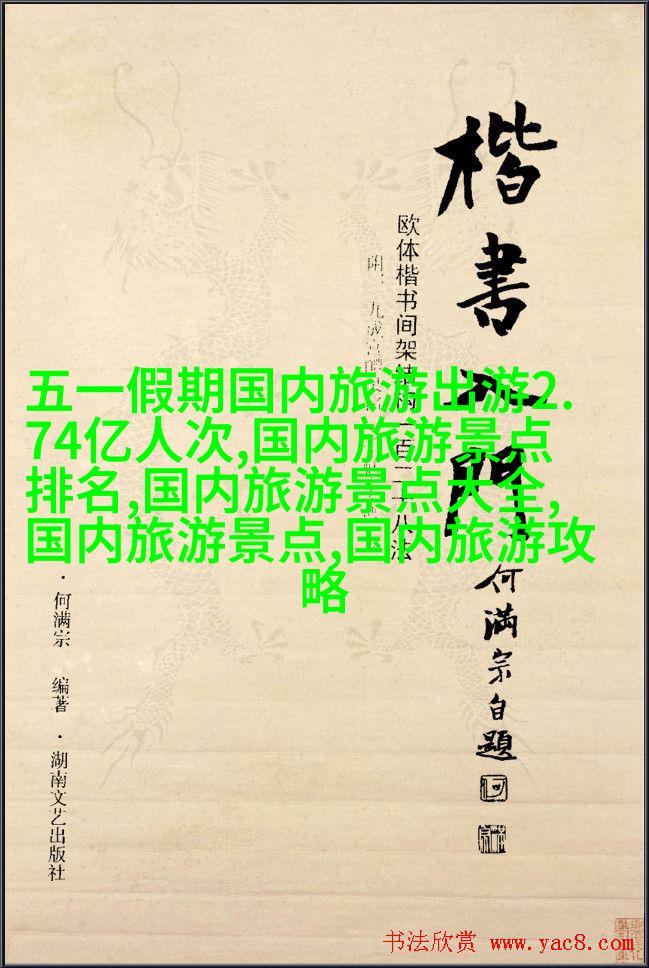 楷書入門
何滿宗自題
欧体楷书间架结构一百二十八法
五一假期国内旅游出游2.
74亿人次,国内旅游景点
排名,国内旅游景点大全,
国内旅游景点,国内旅游攻
略
·何满宗 编著·湖南文艺出版社
书法欣赏 www.yac8.com